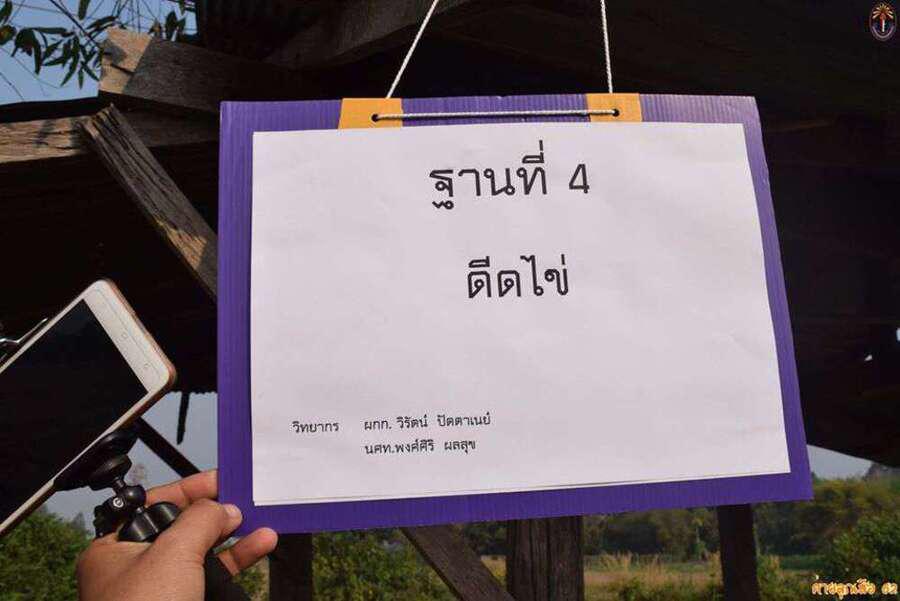 ฐานที่ 4
ดีดไข่
วิทยากร ผกก. วิรัตน์ ปัตตาเนย์
นศท.พงศ์ศิริ ผลสุข
ค่ายลูกเสือ 62